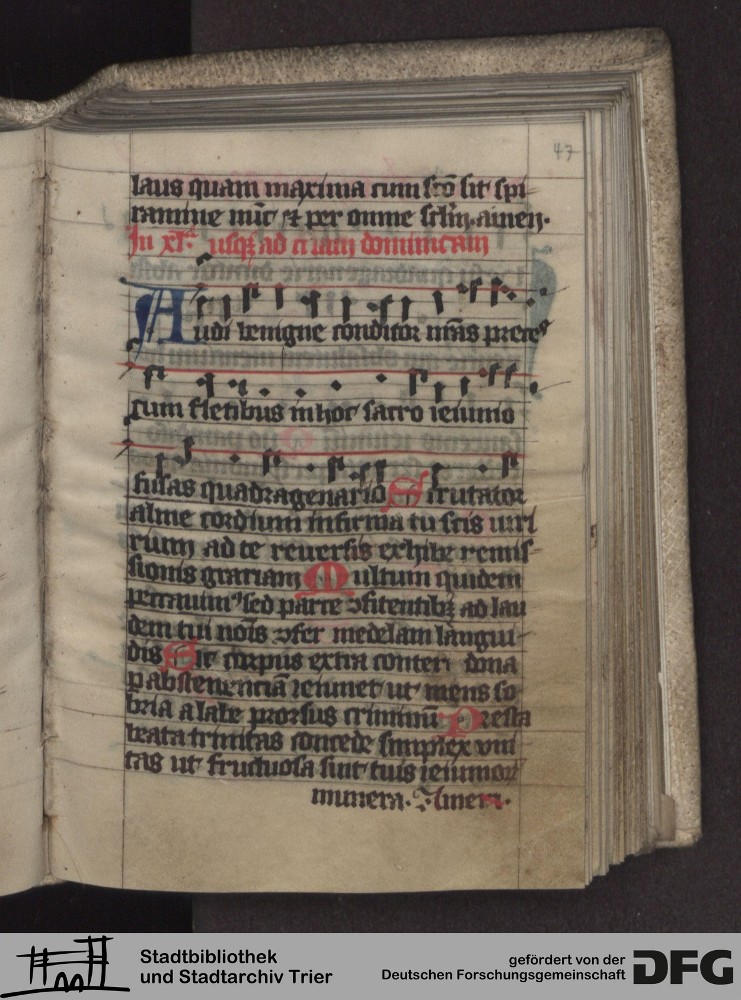 47
laus quam maxima cum sc̄o sit spi
ramine nūc et per omne sclm̄. amen.
In xl. usqꝫ ad quartam dominicam
Audi benigne conditor nr̄as prece
cum fletibus in hoc sacro ieiunio
fusas quadragenario Scrutator
alme cordium infirma tu scis uiri
rum ad te reuersis exhibe remis
sionis gratiam Multum quidem
peccauimꝰ sed parce ꝯfitentibꝫ ad lau
dem tui nōis ꝯfer medelam langui
dis Sic corpus extra conteri dona
p abstenenciā ieiunet ut mens so
bria a labe prorsus criminū Presta
beata trinitas concede simplex vni
tas ut fructuosa sint tuis ieiunior
munera. Amen.
Stadtbibliothek
und Stadtarchiv Trier
gefördert von der
Deutschen Forschungsgemeinschaft
DFG